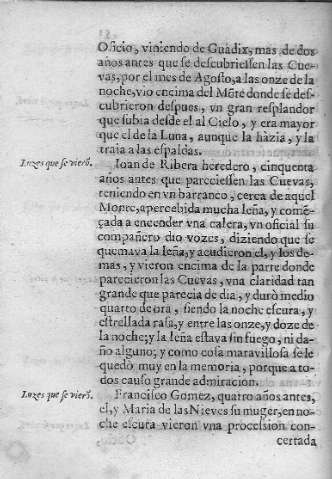 Oficio, viniendo de Guadix, mas de dos
años antes que se descubriessen las Cue-
vas, por el mes de Agosto, a las onze de la
noche, vio encima del Mõte donde se des-
cubrieron despues, vn gran resplandor
que subia desde el al Cielo, y era mayor
que el de la Luna, aunque la hàzia, y la
traìa a las espaldas.
Luzes que se vierõ.
Ioan de Ribera heredero, cinquenta
años antes que pareciessen las Cuevas,
teniendo en vn barranco, cerca de aquel
Monte, apercebida mucha leña, y comẽ-
çada a encender vna calera, vn oficial su
compañero dio vozes, diziendo que se
quemava la leña, y acudieron el, y los de-
mas, y vieron encima de la parte donde
parecieron las Cuevas, vna claridad tan
grande que parecia de dia, y durò medio
quarto de ora, siendo la noche escura, y
estrellada rasa, y entre las onze, y doze de
la noche; y la leña estava sin fuego, ni da-
ño alguno; y como cosa maravillosa se le
quedo muy en la memoria, porque a to-
dos causo grande admiracion.
Luzes que se vierõ.
Francisco Gomez, quatro años antes,
el, y Maria de las Nieves su muger, en no-
che escura vieron vna procession con-
certada